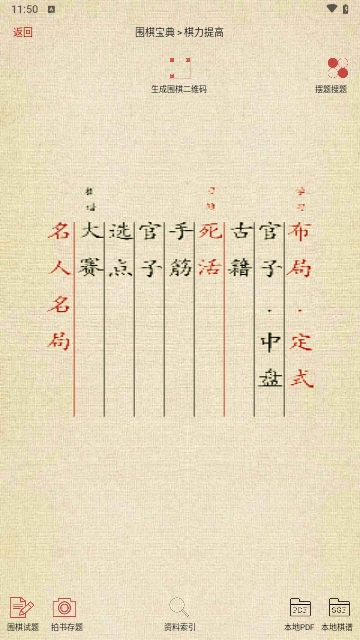 11:50
返回
围棋宝典 > 棋力提高
生成围棋二维码
摆题搜题
学习
布局·定式
官子·中盘
古籍
死活
手筋
官子
选点
大赛
名人名局
围棋试题
拍书存题
资料索引
本地PDF
本地棋谱